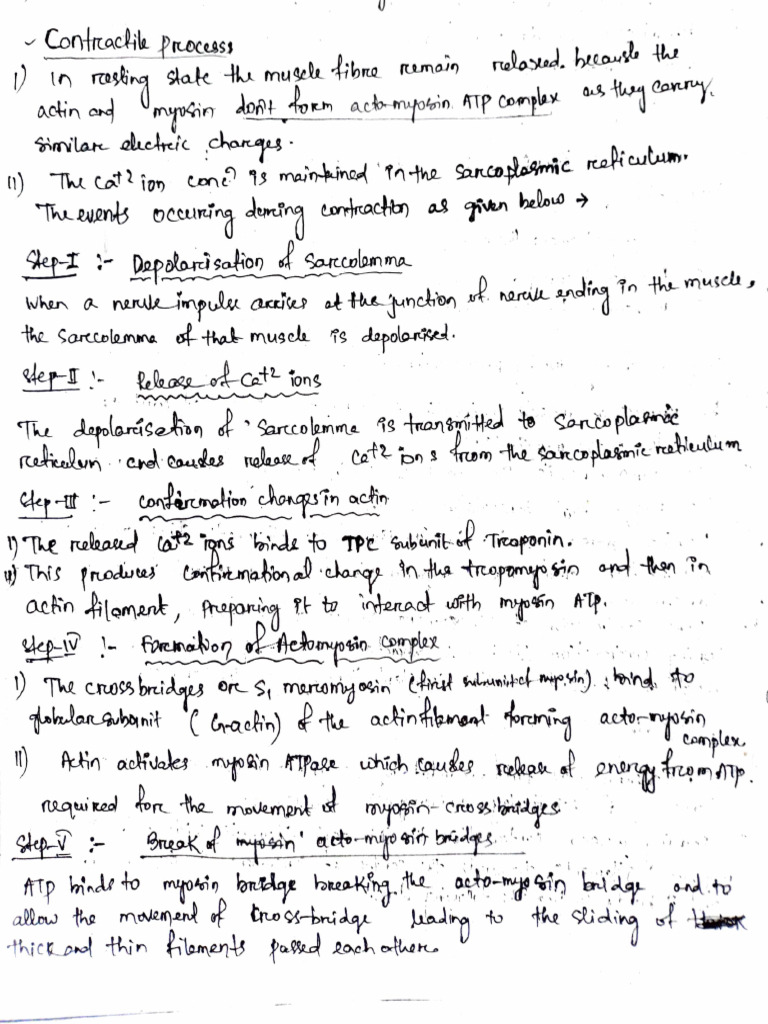 ✓ Contractile process
I) In resting state the muscle fibre remain relaxed. because the
actin and myosin don't form acto-myosin ATP complex as they carry
similar electric charges.
II) The Ca+2 ion conc? is maintained in the sarcoplasmic reticulum.
The events occuring during contraction as given below →
Step-I :- Depolarisation of Sarcolemma
When a nerve impulse arrives at the junction of nerve ending in the muscle,
the sarcolemma of that muscle is depolarised.
Step-II :- Release of Ca+2 ions
The depolarisation of sarcolemma is transmitted to Sarcoplasmic
reticulum and causes release of Ca+2 ions from the sarcoplasmic reticulum
Step-III :- conformation changes in actin
I) The released Ca+2 ions binds to TPC subunit of Troponin.
II) This produces confirmational change in the tropomyosin and then in
actin filament, preparing it to interact with myosin ATP.
Step-IV :- Formation of Actomyosin complex
I) The cross bridges or S1 meromyosin (first subunit of myosin) bind to
globular subunit (G-actin) of the actin filament forming acto-myosin
complex
II) Actin activates myosin ATPase which causes release of energy from ATP
required for the movement of myosin-cross bridges
Step-V :- Break of myosin acto-myosin bridges
ATP binds to myosin bridge breaking the acto-myosin bridge and to
allow the movement of cross-bridge leading to the sliding of
thick and thin filements passed each other.